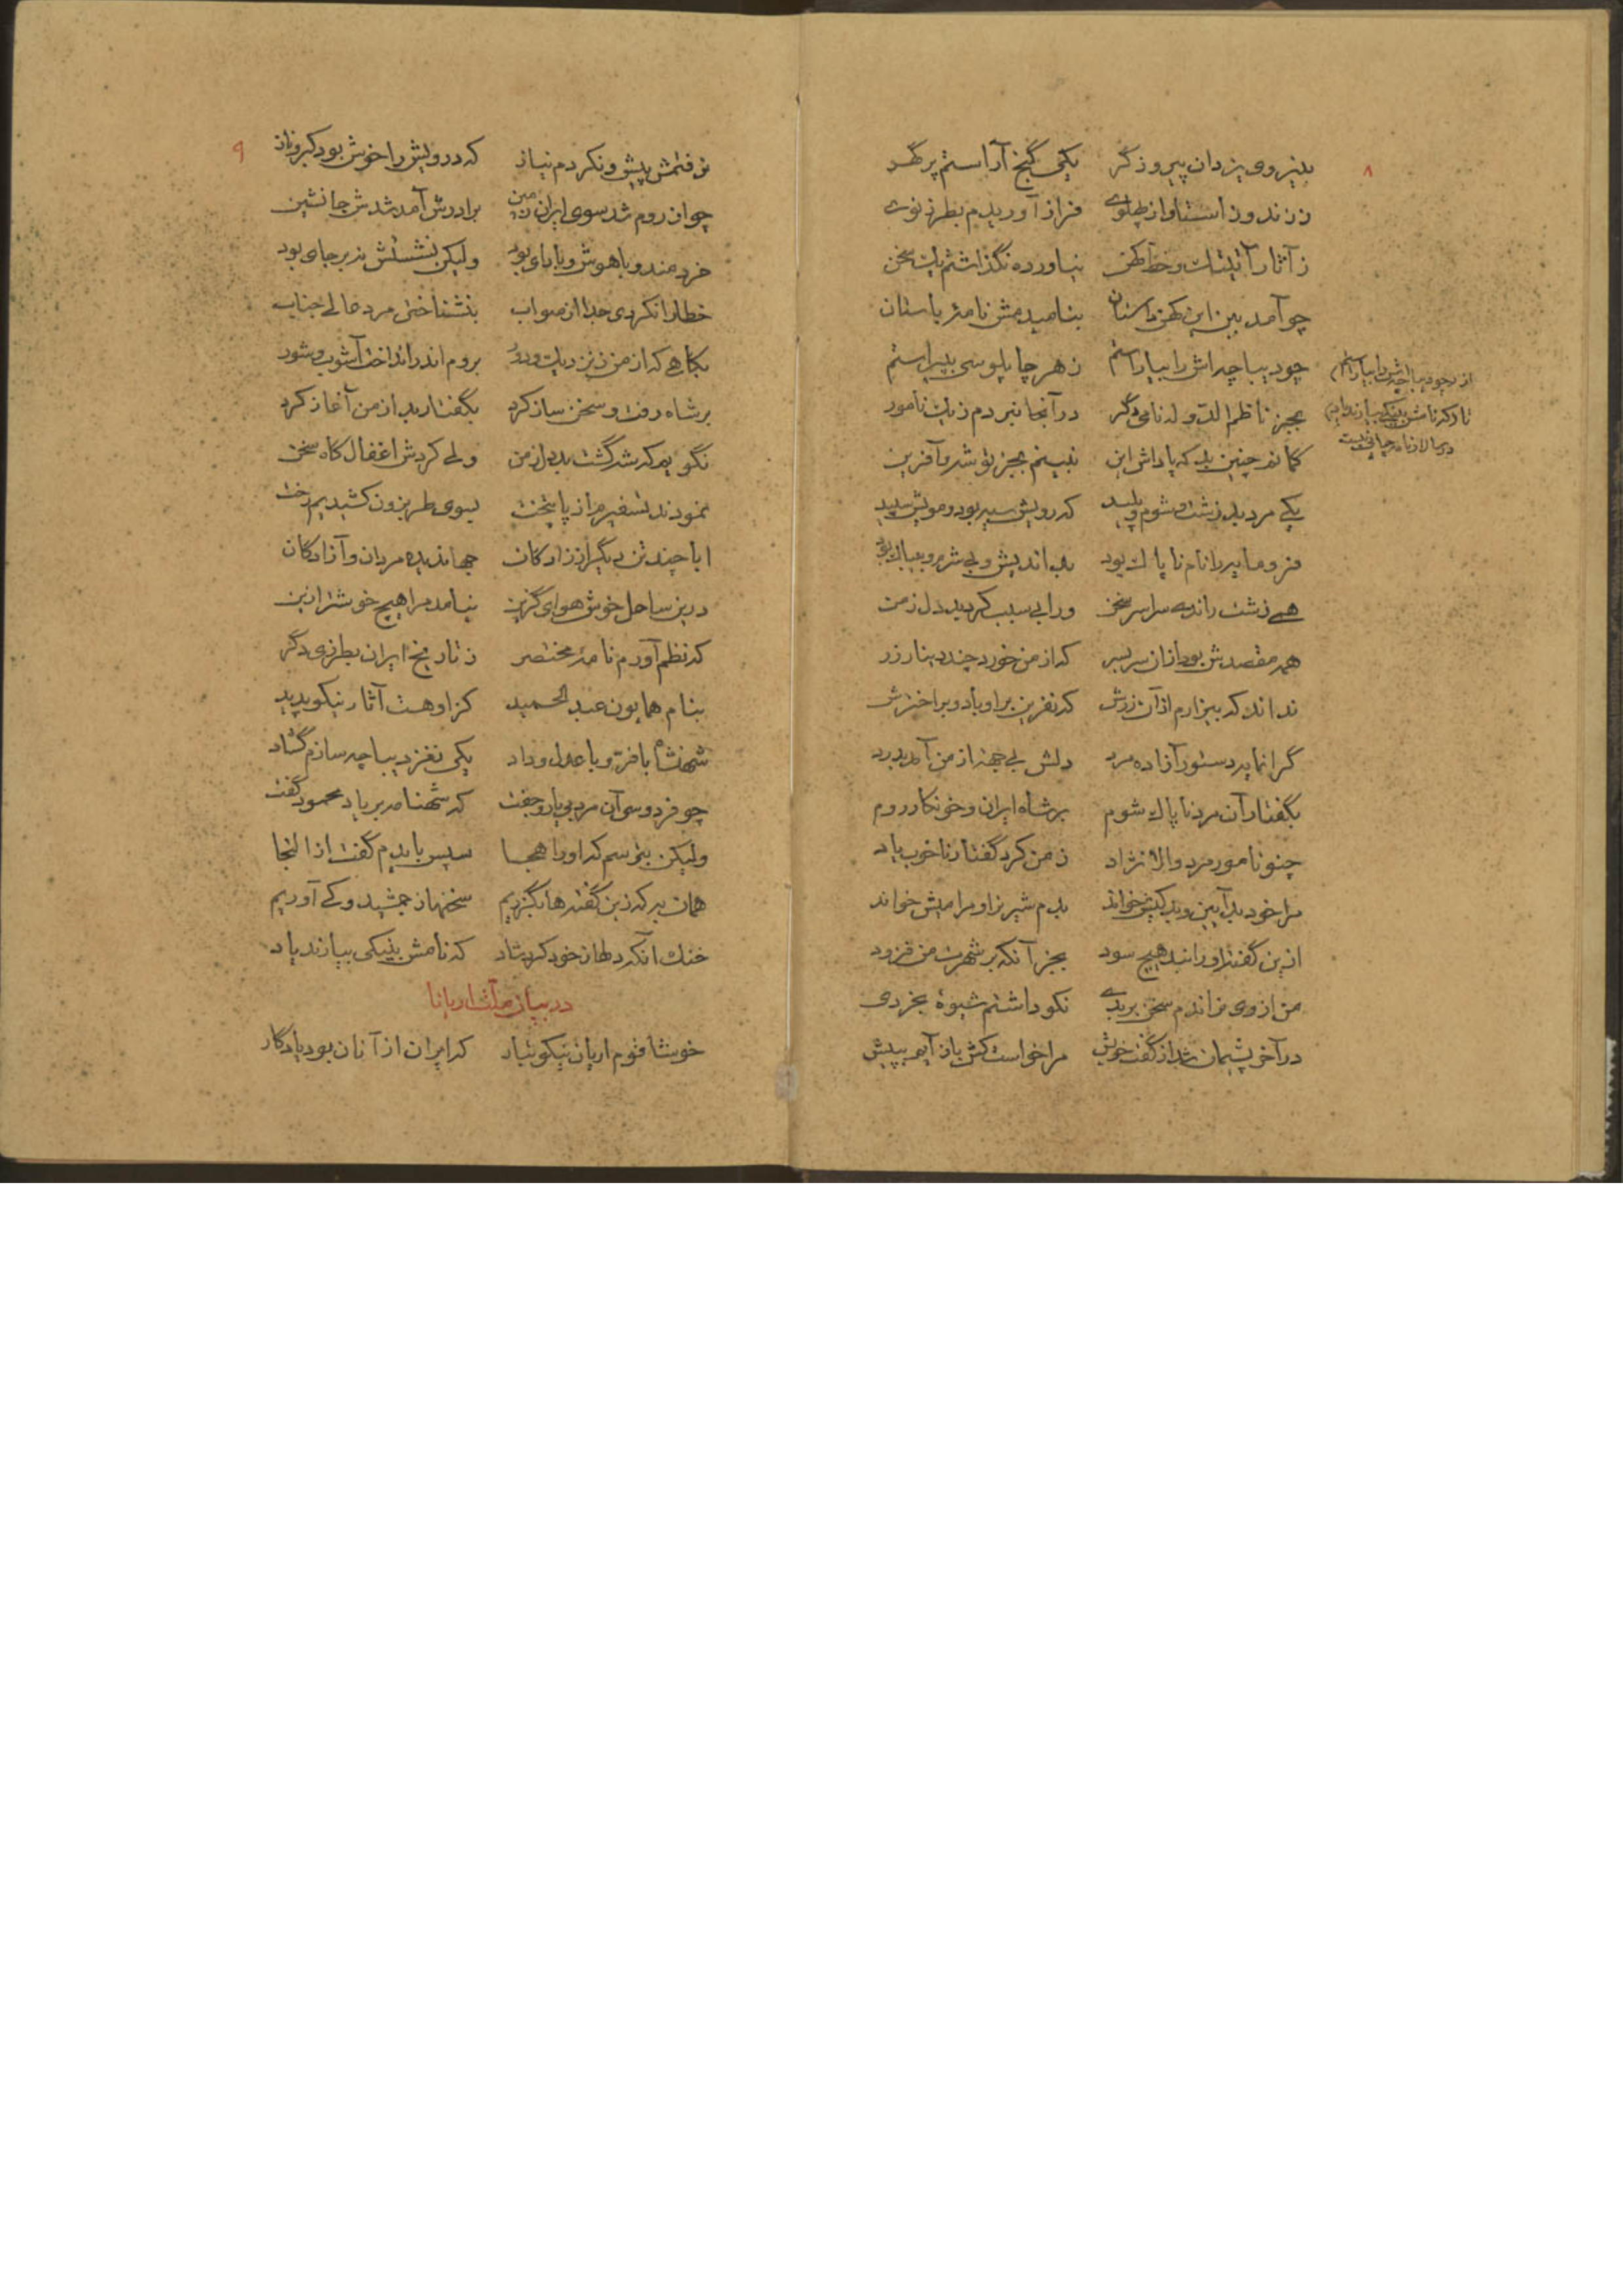 ۸
بنیروی یزدان پیروزگر یکی گنج آراستم پر گهر
ز زند و ز استا و از پهلوی فراز آوریدم بطرز نوی
ز آثار آنتیک و خط کهن نیاورده نگذاشتم یک سخن
چو آمد ببن این کهن داستان بنامیدمش نامهٔ باستان
چو دیباچه‌اش را بیاراستم ز هر چاپلوسی بپیراستم
بجز ناظم الدوله نامی دگر در آنجا نبردم ز یک نامور
گمانم چنین بد که پاداش این نبینم بجز نوش و آفرین
یکی مرد بد زشت و شوم و پلید که رویش سیه بود و مویش سپید
فرومایه را نام ناپاک بود بداندیش و بی شرم و بیباک بود
همی زشت راندی سراسر سخن ورا بی سبب کرد بد دل ز من
همه مقصدش بود ازان سربسر که از من خورد چند دینار زر
نداند که بیزارم از آن زرش که نفرین بر او باد و بر اخترش
گرانمایه دستور آزاده مرد دلش بی جهت از من آمد بدرد
بگفتار آن مرد ناپاک شوم بر شاه ایران و خونکار روم
چنو نامور مرد والا نژاد ز من کرد گفتار ناخوب یاد
مرا خود بد آیین و بد کیش خواند بدم شیر نر او مرا میش خواند
ازین گفتن او را نبد هیچ سود بجز آنکه بر شهرت من فزود
من از وی نراندم سخن بر بدی نکو داشتم شیوهٔ بخردی
در آخر پشیمان شد از گفت خویش مرا خواست کش باز آیم بپیش
از چو دیباچه‌اش را بیاراستم
تا که نامش بنیکی بیارند یاد
۹
نرفتمش پیش و نکردم نیاز که درویش را خوش بود کبر و ناز
چو از روم شد سوی ایران زمین برادرش آمد شدش جانشین
خردمند و با هوش و با رای بود ولیکن نشستنش نه بر جای بود
خطا را نکردی جدا از صواب بنشناختی مرد عالی جناب
بگاهی که از من ز نزدیک و دور بروم اندر انداخت آشوب و شور
بر شاه رفت و سخن ساز کرد بگفتار بد از من آغاز کرد
نگویم که شه گشت بد دل ز من ولی کردش اغفال گاه سخن
نمودند تسفیرم از پایتخت بسوی طربزون کشیدیم رخت
ابا چند تن دیگر از زادگان جهاندیده مردان و آزادگان
درین ساحل خوش هوای گزین نیامد مرا هیچ خوشتر ازین
که نظم آورم نامهٔ مختصر ز تاریخ ایران بطرزی دگر
بنام همایون عبد الحمید کز او هست آثار نیکو پدید
شهنشاه با فر و با عدل و داد یکی نغز دیباچه سازم گشاد
چو فردوسی آن مرد بی یار و جفت که شهنامه بر یاد محمود گفت
ولیکن بترسم که او را هجا سپس بایدم گفت از التجا
همان به که زین گفته‌ها بگذریم سخنها ز جمشید و کی آوریم
خنک آنکه دلها ز خود کرد شاد که نامش بنیکی بیارند یاد
در بیان ملت اریانا
خوشا قوم اریان نیکو تبار که ایران از آنان بود یادگار